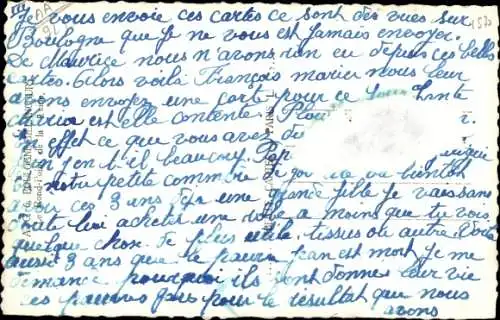 Je vous envoie ces cartes ce sont des vues sur
Boulogne que je ne vous est jamais envoyer.
De Maurice nous n'avons rien eu depuis ces belles
cartes. Alors voilà François marier nous leur
avons envoyez une carte pour ce jour
est elle contente.
effet ce que vous avez du
il beaucoup.
notre petite comme va bientôt
avoir ces 3 ans une grande fille je vais sans
doute lui acheter une robe a moins que tu vois
quelque chose de plus utile. tissus ou autre. Voilà
aussi 3 ans que le pauvre Jean est mort je me
demande pourquoi ils ont donner leur vie
ces pauvres gars pour le résultat que nous
avons